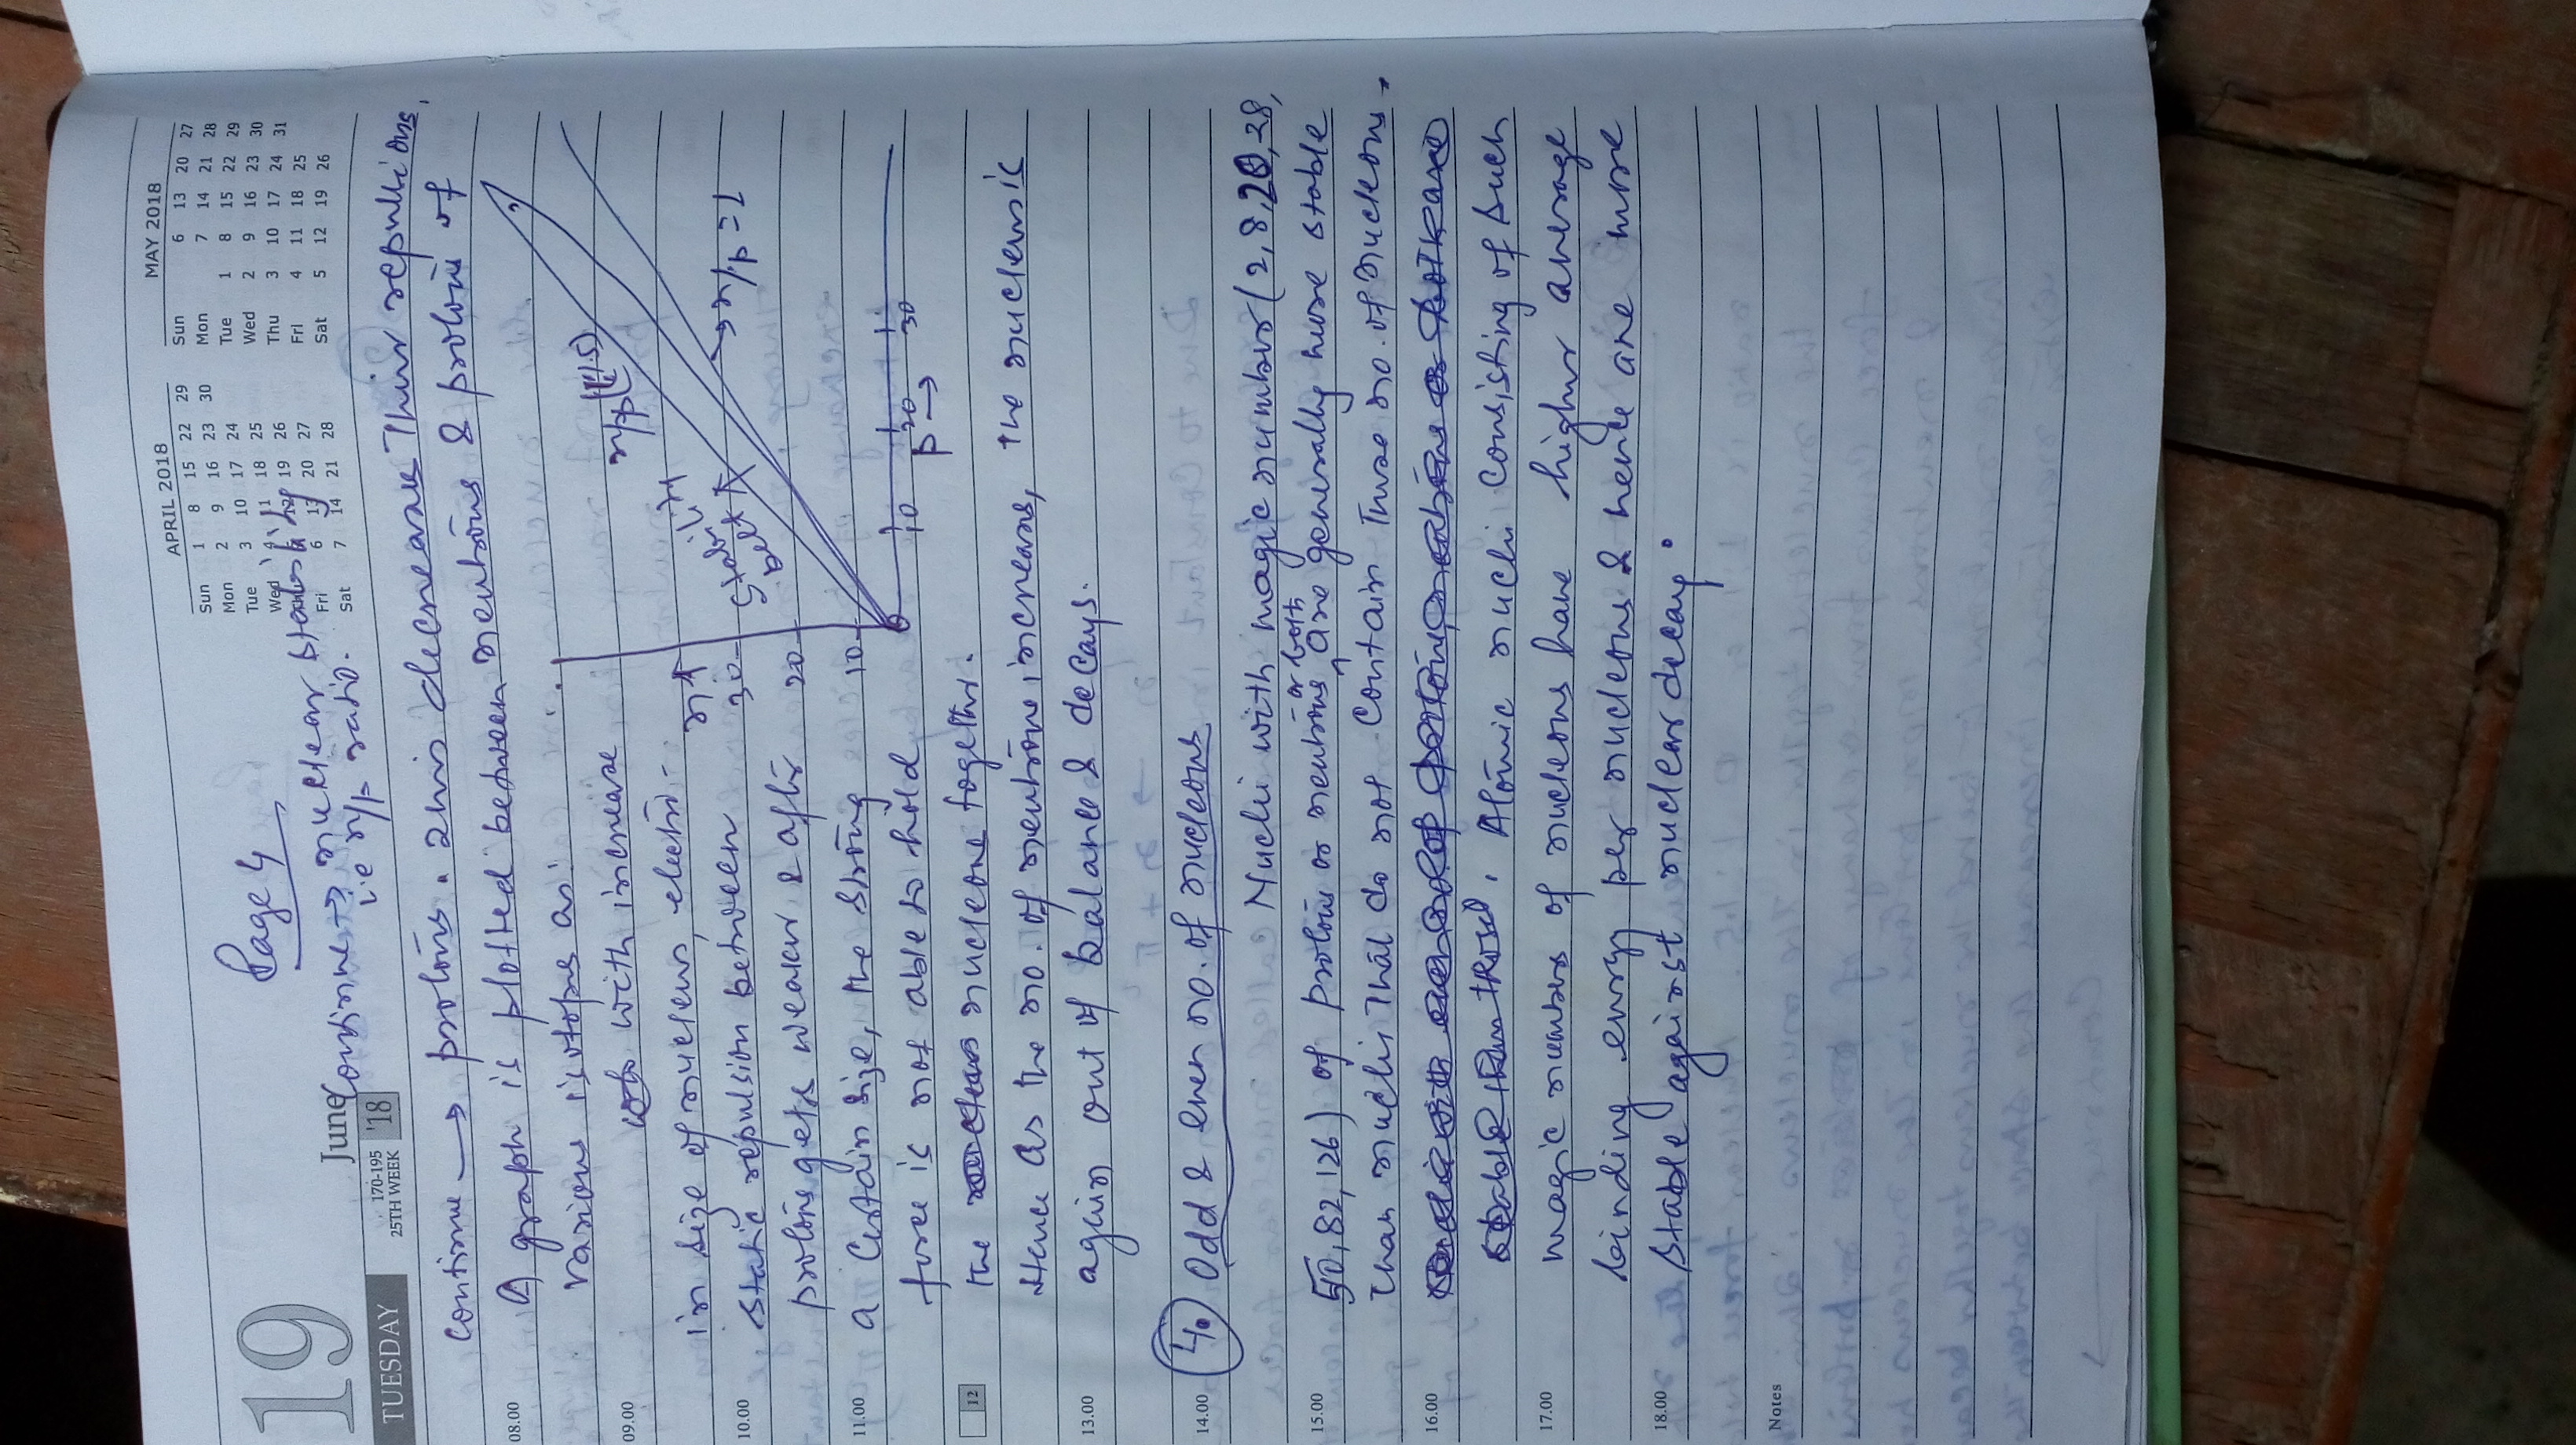 Page 4
19
June
TUESDAY
170-195
25TH WEEK
'18
APRIL 2018
Sun 1 8 15 22 29
Mon 2 9 16 23 30
Tue 3 10 17 24
Wed 4 11 18 25
12 19 26
Fri 6 13 20 27
Sat 7 14 21 28
MAY 2018
Sun 6 13 20 27
Mon 7 14 21 28
Tue 1 8 15 22 29
Wed 2 9 16 23 30
Thu 3 10 17 24 31
Fri 4 11 18 25
Sat 5 12 19 26
Continue → nuclear stability
ie n/p ratio.
continue → protons. This decrease their repulsions.
A graph is plotted between neutrons & protons of
various isotopes as:
with increase
in size of nucleus, electro-
static repulsion between
protons gets weaker & after
a certain size, the strong
force is not able to hold
the nucleons together.
n↑
30
20
10
stability
belt
n/p (1.5)
→ n/p = 1
10 20 30
p →
Hence as the no. of neutrons increases, the nucleus is
again out of balance & decays.
4. Odd & even no. of nucleons
Nuclei with magic number (2, 8, 20, 28,
50, 82, 126) of protons or neutrons or both are generally more stable
than nuclei that do not contain these no. of nucleons.
Atomic nuclei consisting of such
magic numbers of nucleons have higher average
binding energy per nucleons & hence are more
stable against nuclear decay.
08.00
09.00
10.00
11.00
12
13.00
14.00
15.00
16.00
17.00
18.00
Notes